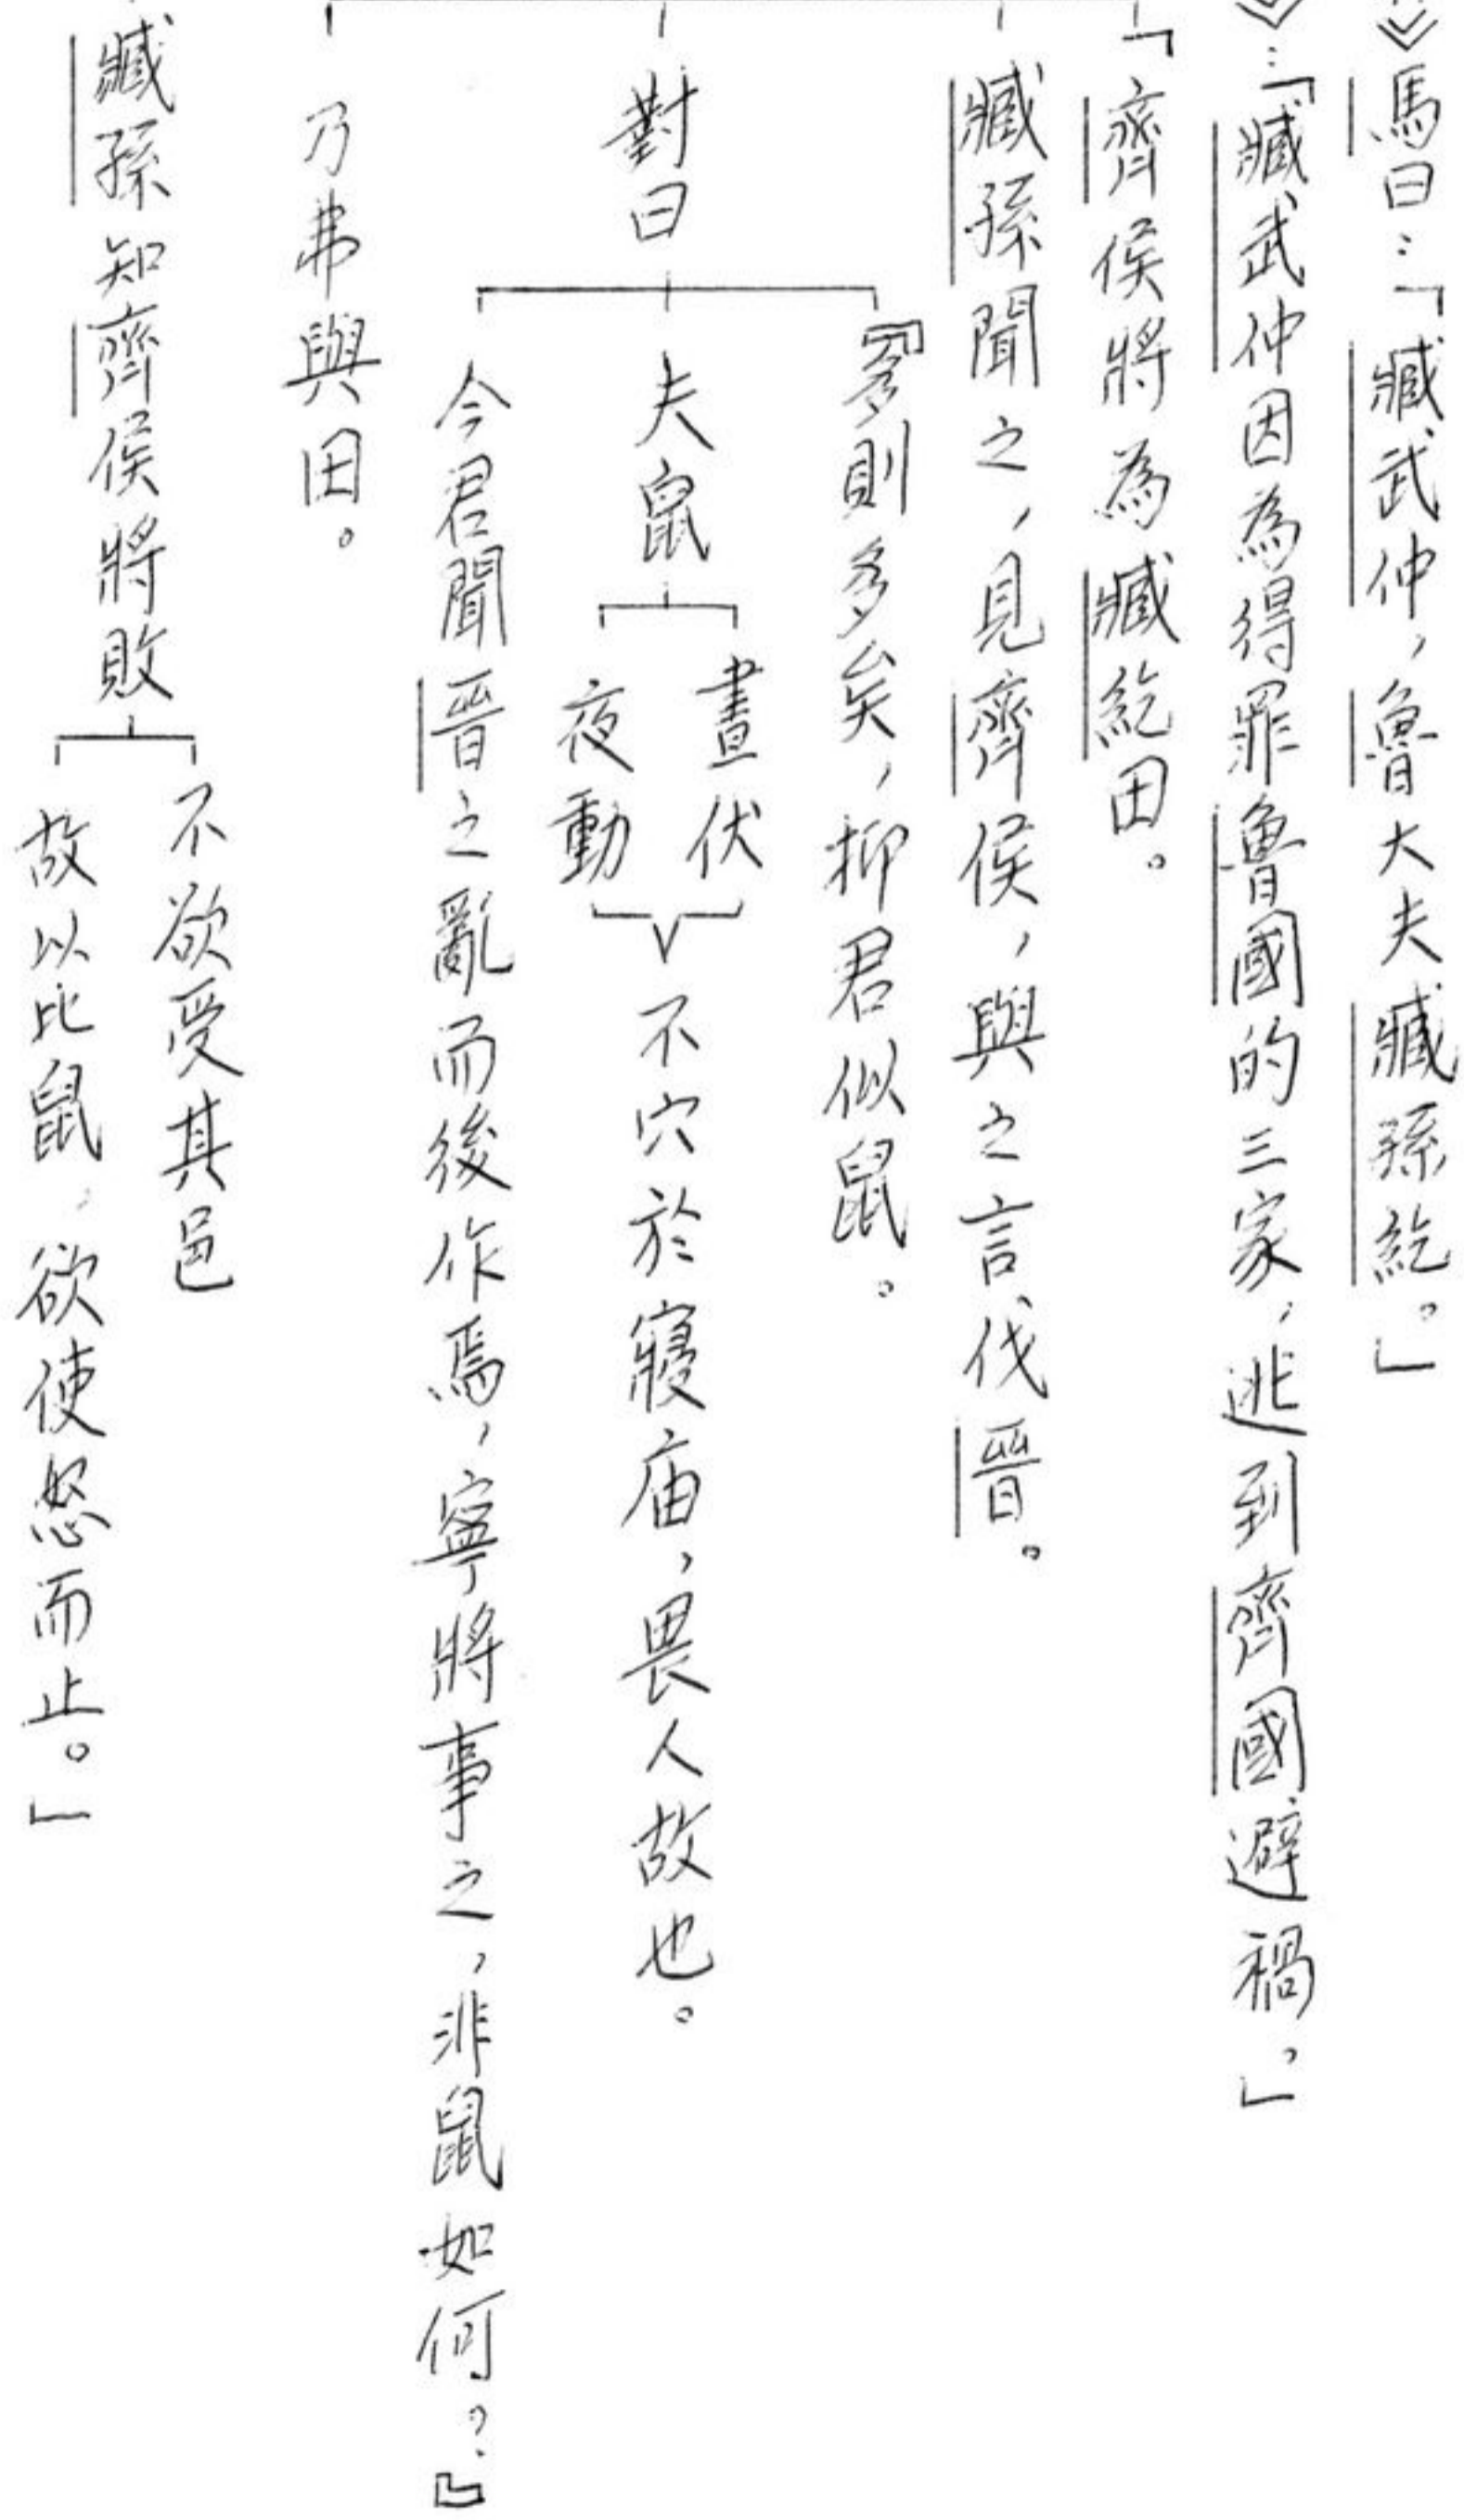 》馬曰：「臧武仲，魯大夫臧孫紇。」
》：「臧武仲因為得罪魯國的三家，逃到齊國避禍。」
「齊侯將為臧紇田。
臧孫聞之，見齊侯，與之言伐晉。
對曰
『多則多矣，抑君似鼠。
夫鼠
晝伏
夜動
不穴於寢庙，畏人故也。
今君聞晉之亂而後作焉，寧將事之，非鼠如何？』
乃弗與田。
臧孫知齊侯將敗
不欲受其邑
故以比鼠，欲使怒而止。」